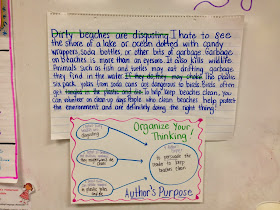 Dirty beaches are disgusting. I hate to see
the shore of a lake or ocean dotted with candy
wrappers, soda bottles, or other bits of garbage. Garbage
on beaches is more than an eyesore. It also kills wildlife.
Animals such as fish and turtles may eat drifting garbage
they find in the water. If they do, they may choke. The plastic
six-pack yokes from soda cans are dangerous to birds. Birds often
get tangled in the plastic and die. To help keep beaches clean, you
can volunteer on clean-up days. People who clean beaches help protect
the environment and are definitely doing the right thing!
Organize Your
Thinking!
disgusting
to persuade the
reader to keep
beaches clean
Author's Purpose